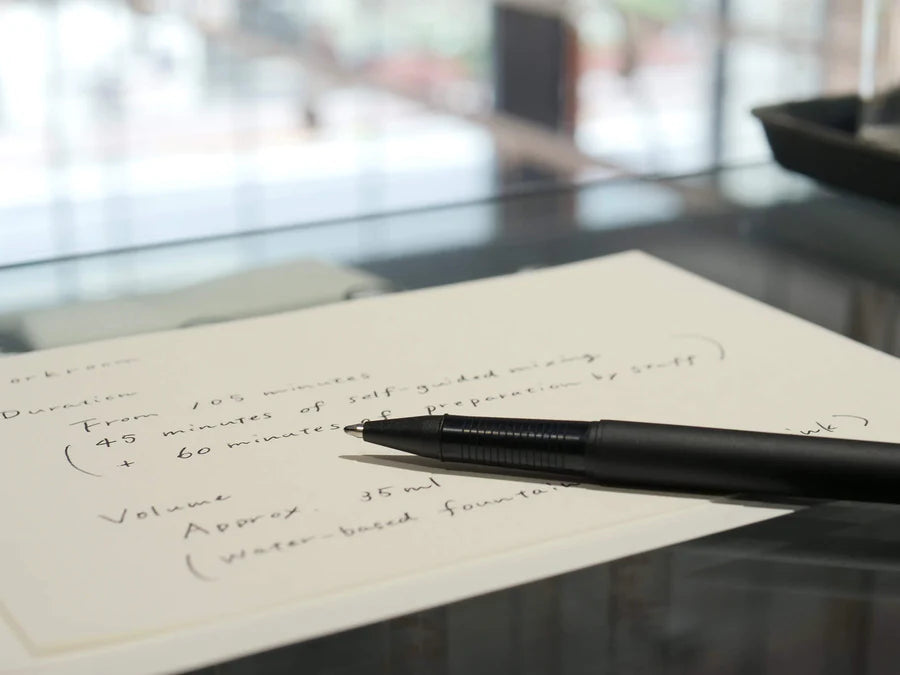 orkroom
Duration
From 105 minutes
(45 minutes of self-guided mixing
+ 60 minutes of preparation by staff)
Volume
Approx. 35 ml
(water-based fountain ink)